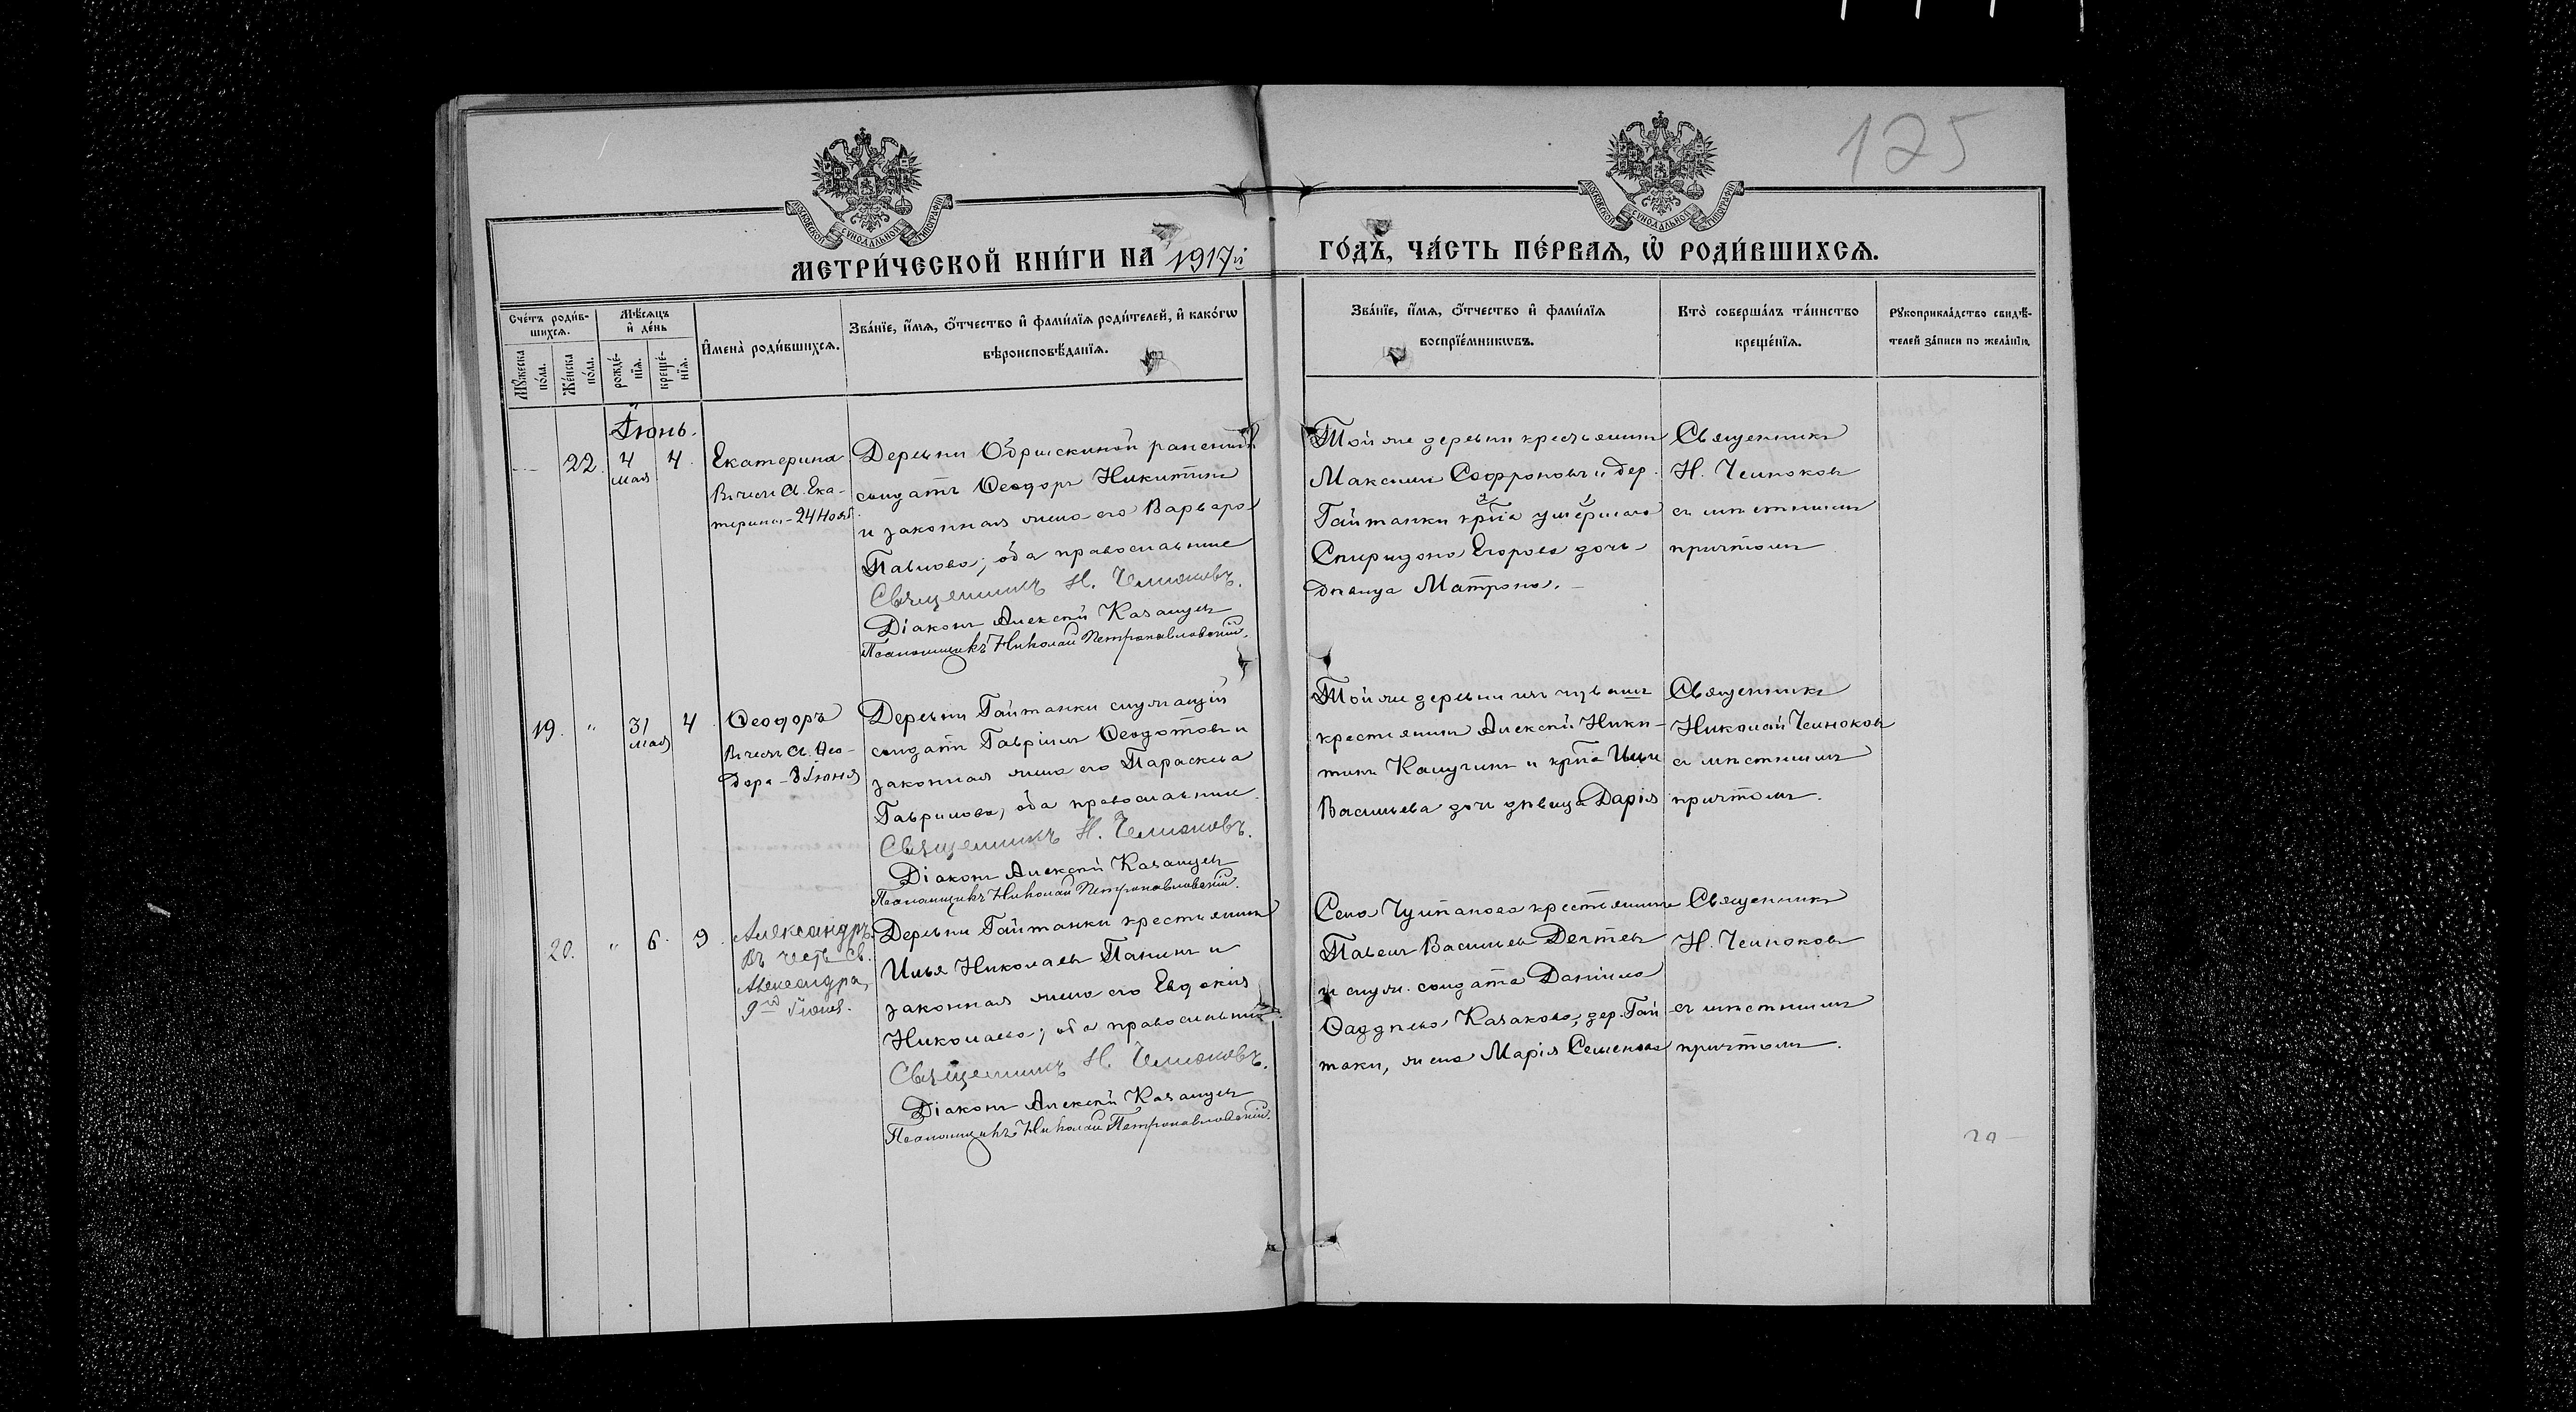 125
МОСКОВСКОЙ СѴНОДАЛЬНОЙ ТИПОГРАФІИ
МОСКОВСКОЙ СѴНОДАЛЬНОЙ ТИПОГРАФІИ
МЕТРИ́ЧЕСКОЙ КНИ́ГИ НА 1917й
ГО́ДЪ, ЧА́СТЬ ПЕ́РВАЯ, Ѡ҆ РОДИ́ВШИХСЯ.
Сче́тъ роди́в-
шихсѧ.
Мꙋ́жеска по́ла.
Же́нска по́ла.
Мѣ́сѧцъ и҆ де́нь
рожде́-нїѧ.
креще́-нїѧ.
И҆мена̀ роди́вшихсѧ.
Зва́нїе, и҆́мѧ, ѻ҆́тчество и҆ фами́лїѧ роди́телей, и҆ како́гѡ
вѣроисповѣ́данїѧ.
Зва́нїе, и҆́мѧ, ѻ҆́тчество и҆ фами́лїѧ
воспрїе́мникѡвъ.
Кто̀ соверша́лъ та́инство
креще́нїѧ.
Рꙋкоприкла́дство свидѣ́-
телей за́писи по жела́нїю.
Іюнь.
22. 4 мая 4.
Екатерина
Въ честь св. Ека-
терины - 24 Нояб.
Деревни Обряскиной раненый
солдатъ Ѳеодоръ Никитинъ
и законная жена его Варвара
Павлова; оба православные
Священникъ Н. Чемоковъ.
Діаконъ Алексѣй Казанцев
Псаломщикъ Николай Петропавловскій.
Той же деревни крестьянинъ
Максимъ Софроновъ и дер.
Гайтанки кр-на умершаго
Спиридона Егорова дочь
дѣвица Матрона.
Священникъ
Н. Чемоковъ
съ мѣстнымъ
причтомъ
19. " 31 мая 4
Ѳеодоръ
Въ честь св. Ѳео-
дора - 8 Іюня
Деревни Гайтанки служащій
солдатъ Гавріилъ Ѳеодотовъ и
законная жена его Параскева
Гаврилова, оба православные
Священникъ Н. Чемоковъ.
Діаконъ Алексѣй Казанцев
Псаломщикъ Николай Петропавловскій.
Той же деревни изъ чувашъ
крестьянинъ Алексѣй Ники-
тинъ и кр-на Ильи
Васильева дочь дѣвица Дарія
Священникъ
Николай Чемоковъ
съ мѣстнымъ
причтомъ.
20. " 6. 9.
Александръ.
Въ честь св.
Александра,
9го Іюня.
Деревни Гайтанки крестьянинъ
Илья Николаевъ Панинъ и
законная жена его Евдокія
Николаева; оба православные
Священникъ Н. Чемоковъ.
Діаконъ Алексѣй Казанцев
Псаломщикъ Николай Петропавловскій.
Села Чулпанова крестьянинъ
Павелъ Васильевъ
и служ. солдата Даніила
Ѳаддѣева Казакова, дер. Гай
танки, жена Марія Семенова
Священникъ
Н. Чемоковъ
съ мѣстнымъ
причтомъ.